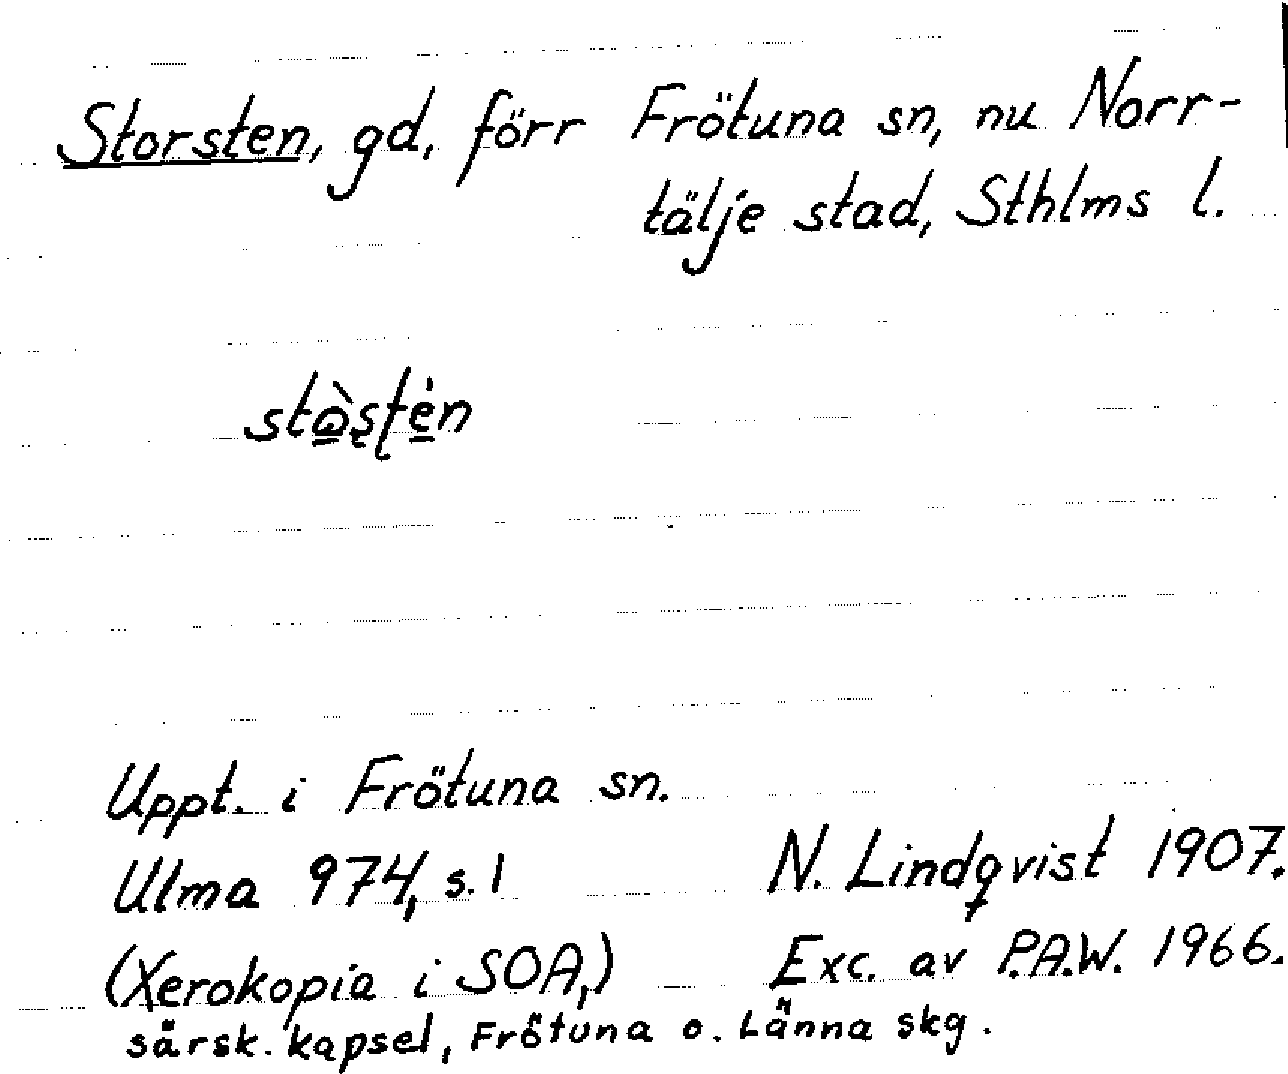 Storsten, gd, förr Frötuna sn, nu Norr-
tälje stad, Sthlms l.
Uppt. i Frötuna sn.
Ulma 974, s. 1 N. Lindqvist 1907.
(Xerokopia i SOA,) Exc. av P.A.W. 1966.
särsk. kapsel, Frötuna o. Länna skg.